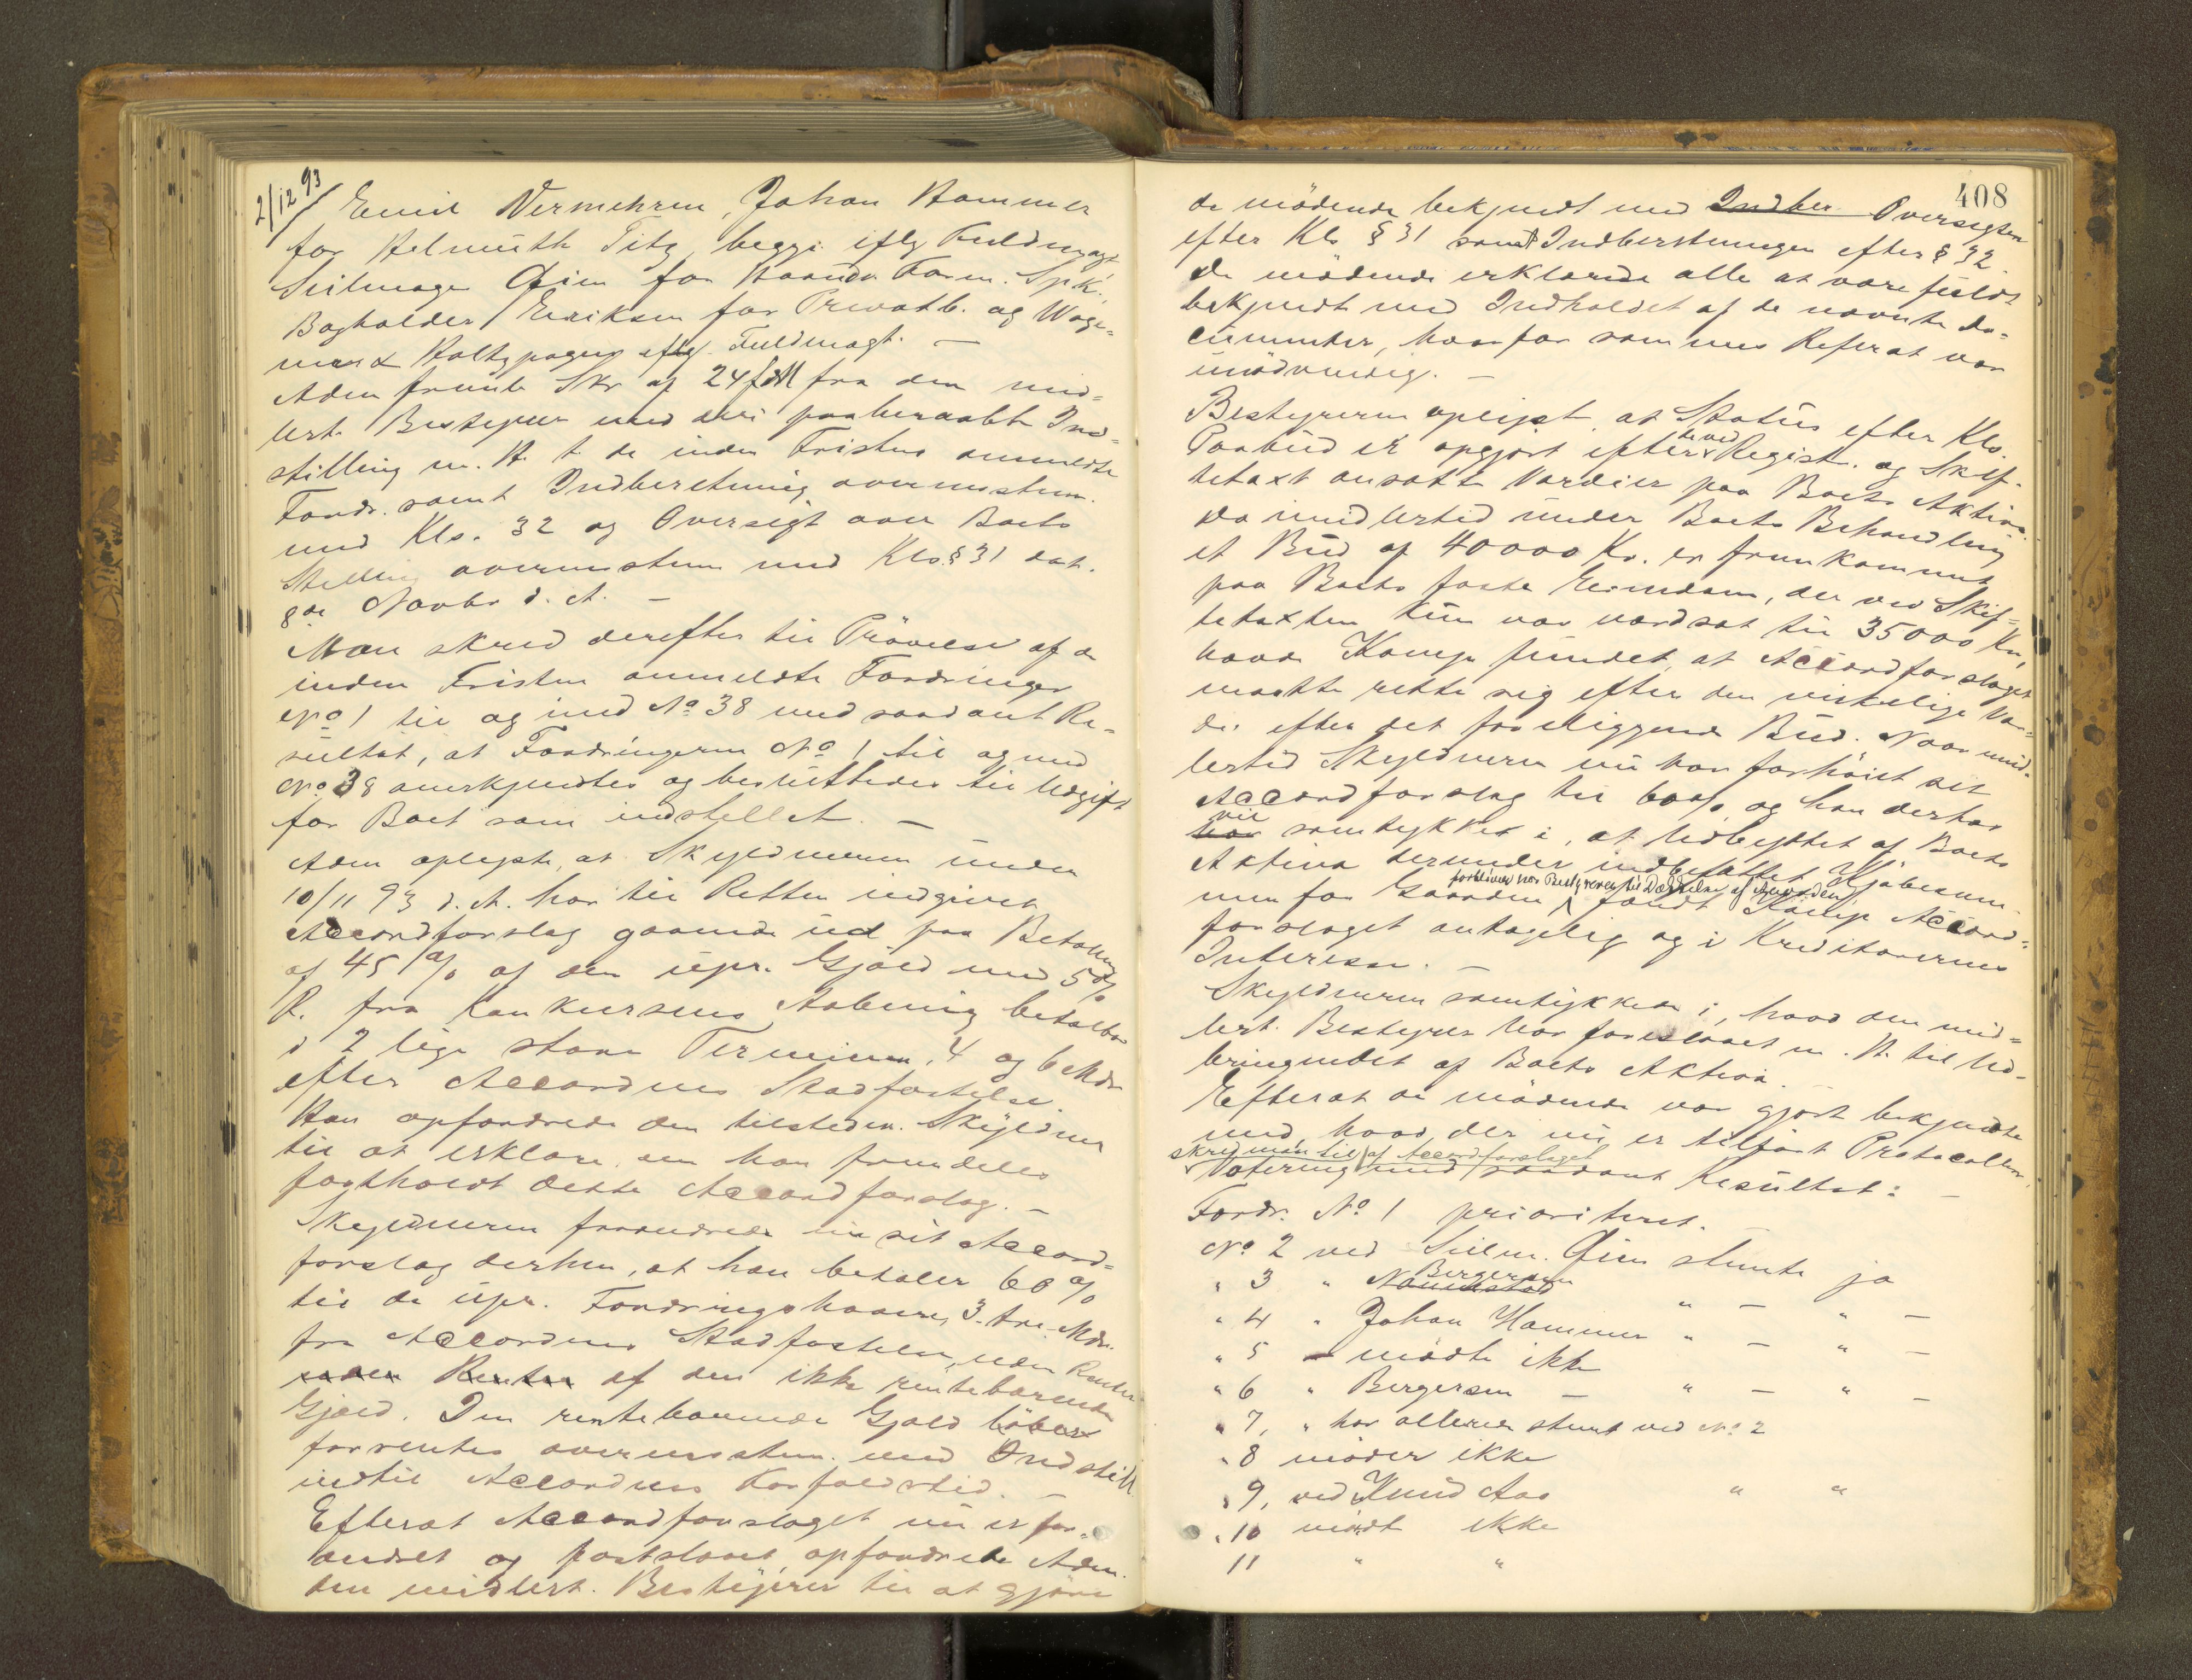 2/12 93
Emil Vermehren, Johan Hammer
for Helmuth Titz, begge iflg Fuldmagt
Seilmager Qien for Haands Form. Spk.,
Bogholder Eriksen for Privatb. og Wage-
mer & Holtzpagers iflg. Fuldmagt. —
Adm fremla Skr af 24 f. M fra den mid-
lert. Bestyrer med deri paaberaabte Ind-
stilling m. H. t. de inden Fristen anmeldte
Fordr. samt Indberetning overensstem.
med Kls. 32 og Oversigt over Boets
Stilling overensstem med Kls. § 31 dat.
8de Novbr d. A. —
Man skred derefter til Prövelse af de
inden Fristen anmeldte Fordringer
No 1 til og med No 38 med saadant Re-
sultat, at Fordringerne No 1 til og med
No 38 anerkjendtes og besluttedes til Udgift
for Boet som indstillet. —
Adm oplyste, at Skyldneren under
10/11 93 d. A. har til Retten indgivet
Accordforslag gaaende ud paa Betaling
af 45 % af den upr. Gjæld med 5 %
R. fra Konkursens Aabning betalbar
i 2 lige store Terminer, 4 og 6 Mdr
efter Accordens Stadfæstelse.
Han opfordrede den tilstedev. Skyldner
til at erklære, om han fremdeles
fastholdt dette Accordforslag. —
Skyldneren forandrede nu sit Accord-
forslag derhen, at han betaler 60 %
til de upr. Fordringshavere, 3 tre Mdr.
fra Accordens Stadfæstelse, uden Renter
uden Renter af den ikke rentebærende
Gjæld. Den rentebærende Gjæld löber
forrentes overensstem. med Indstill
indtil Accordens Forfaldstid. —
Efterat Accordforslaget nu er for-
andret og fastslaaet opfordrede Adm.
den midlert. Bestyrer til at gjöre
408
de mödende bekjendt med Indber Oversigten
efter Kls § 31 samt Indberetningen efter § 32.
De mödende erklærede alle at være fuldt
bekjendt med Indholdet af de nævnte Do-
cumenter, hvorfor sammes Referat var
unödvendig. —
Bestyreren oplyst, at Status efter Kls.
Paabud er opgjort efter de ved Registr. og Skif-
tetaxt ansatte Værdier paa Boets Aktiva.
Da imidlertid under Boets Behandling
et Bud af 40000 Kr. er fremkommet
paa Boets faste Eiendom, der ved Skif-
tetaxten kun var værdsat til 35000 Kr,
havde Komp fundet, at Accordforslaget
maatte rette sig efter den virkelige Vær-
di efter det foreliggende Bud. Naar imid-
lertid Skyldneren nu har forhöiet sit
Accordforslag til 60 %, og han derhos
har vil samtykke i, at Udbyttet af Boets
Aktiva derunder indbefattet Kjöbesum-
men for Gaarden forbliver hos Bestyreren til Dækkelse af Accorden fandt Komp Accord-
forslaget antagelig og i Kreditorernes
Interesse. —
Skyldneren samtykkede i, hvad den mid-
lert. Bestyrer har foreslaaet m. H. til Ind-
bringendet af Boets Aktiva. —
Efterat de mödende var gjort bekjendte
med, hvad der nu er tilfört Protocollen,
skred man til Votering af Accordforslaget med saadant Resultat: —
Fordr. No 1 prioriteret. —
No 2 ved Seilm. Qien stemte ja
" 3 " Naunestad Bergersen " — " —
" 4 " Johan Hammer " — " —
" 5 — mödte ikke
" 6 " Bergersen — " — " —
" 7, " har allerede stemt ved No 2
" 8 möder ikke
" 9, ved Knud Aas " "
" 10 mödt ikke
11 " "